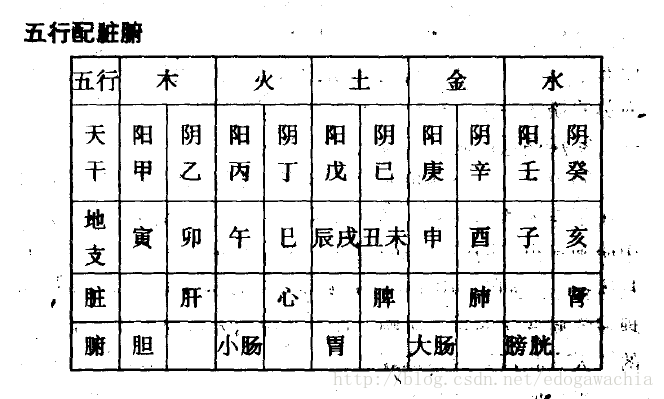 五行配脏腑
五行 木 火 土 金 水
天干 阳甲 阴乙 阳丙 阴丁 阳戊 阴已 阳庚 阴辛 阳壬 阴癸
地支 寅 卯 午 巳 辰戌 丑未 申 酉 子 亥
脏 肝 心 脾 肺 肾
腑 胆 小肠 胃 大肠 膀胱
http://blog.csdn.net/edogawachia